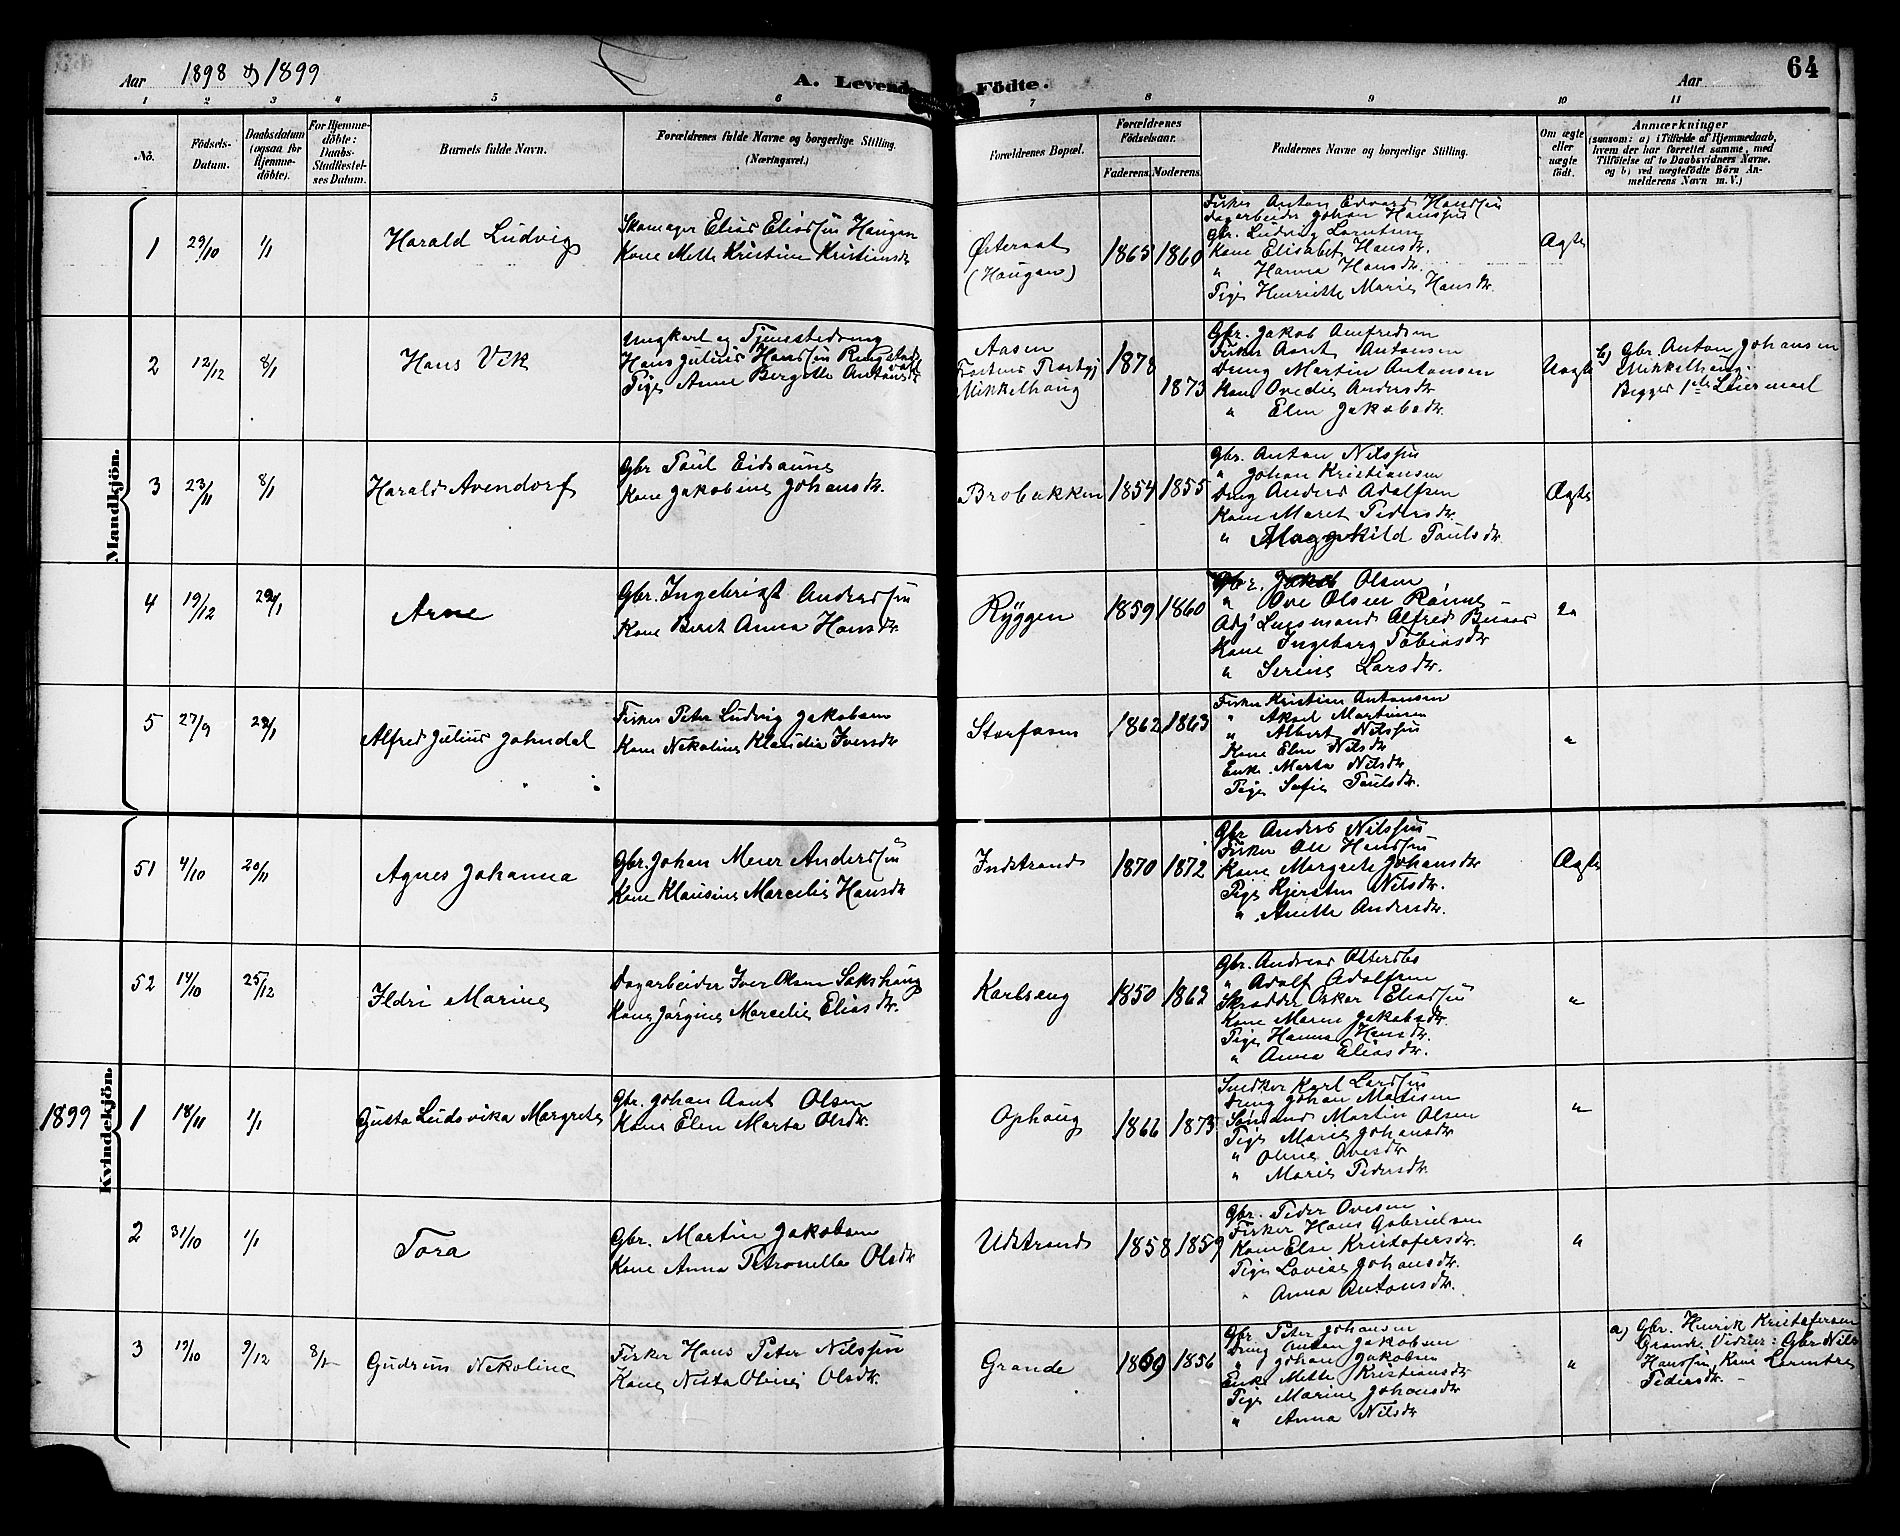 64
Aar 1898 og 1899
A. Levende Födte.
Aar
1 2 3 4 5 6 7 8 9 10 11
No.
Födsels-Datum.
Daabsdatum (ogsaa for Hjemmedöbte).
For Hjemmedöbte: Daabs-Stadfæstelses Datum.
Barnets fulde Navn.
Forældrenes fulde Navne og borgerlige Stilling.
(Næringsvei.)
Forældrenes Bopæl.
Forældrenes Födselsaar.
Faderens. Moderens.
Faddernes Navne og borgerlige Stilling.
Om ægte eller uægte födt.
Anmærkninger
(saasom: a) i Tilfælde af Hjemmedaab, hvem der har forrettet samme, med Tilföielse af to Daabsvidners Navne, og b) ved uægtefödte Börn Anmelderens Navn m. V.)
Mandkjön.
1 29/10 1/1 Harald Ludvig
Skomager Elias Eliassen Haugen
Kone Mette Kristine Kristiansdr
Østeraat
(Haugen)
1865 1860
Fisker Anton Edvard Hanssen
Dagarbeider Johan Hanssen
Gbr. Ludvig Larntsen
Kone Elisabet Hansdr.
" Hanna Hansdr.
Pige Henriette Marie Hansdr.
Ægte
2 12/12 8/1 Hans Vik
Ungkarl og Tjenestedreng
Hans Julius Hanssen Ringstad
Pige Anne Bergitte Antonsdr
Aasen
Mikkelhaug
1878
1873
Gbr. Jakob Amfredsen
Fisker Arnt Antonsen
Dreng Martin Antonsen
Kone Ovedie Andersdr
" Elen Jakobsdr.
Uægte
b) Gbr. Anton Johansen
Mikkelhaug.
Begges 1ste Leiermaal
3 23/11 8/1 Harald Avendorf
Gbr Paul Eidsaune
Kone Jakobine Johansdr.
Brobakken
1854 1855
Gbr. Anton Nilssen
" Johan Kristiansen
Dreng Anders Adolfsen
Kone Maret Pedersdr.
" Maggehild Paulsdr.
Ægte
4 19/12 29/1 Arne
Gbr. Ingebrigt Anderssen
Kone Beret Anna Hansdr.
Ryggen
1859 1860
Gbr. Jakob Olsen
" Ove Olsen Rønne
Adj Lensmand Alfred Buaas
Kone Ingeborg Tobiasdr
" Serine Larsdr.
"
5 27/9 29/1 Alfred Julius Johndal
Fisker Peter Ludvig Jakobsen
Kone Nekoline Klaudia Iversdr
Storfosen
1862 1863
Fisker Kristian Antonsen
" Aksel Martinsen
" Albert Nilssen
Kone Elen Nilsdr
Enke Marta Nilsdr
Pige Sofie Paulsdr.
"
Kvindekjön.
51 4/10 20/11 Agnes Johanna
Gbr. Johan Meier Anderssen
Kone Klausine Marcelie Hansdr
Indstrand
1870 1872
Gbr Anders Nilssen
Fisker Ole Hanssen
Kone Margrete Johansdr
Pige Kjersten Nilsdr.
" Anette Andersdr.
Ægte
52 14/10 25/12 Ildri Marine
Dagarbeider Iver Olsen Sakshaug
Kone Jørgine Marcelie Eliasdr.
Karlseng
1850 1862
Gbr. Andreas Ottersbo
" Adolf Adolfsen
Skrædder Oskar Eliassen
Kone Maren Jakobsdr.
Pige Hanna Hansdr.
" Anna Eliasdr.
"
1899
1 18/11 1/1 Gusta Ludvika Margrete
Gbr. Johan Arnt Olsen
Kone Elen Marta Olsdr.
Ophaug
1866 1873
Snedker Karl Larssen
Dreng Johan Matisen
Sømand Martin Olsen
Pige Marie Johansdr
" Oline Ovesdr
" Marie Pedersdr
"
2 31/10 1/1 Tora
Gbr. Martin Jakobsen
Kone Anna Petronella Olsdr
Udstrand
1858 1859
Gbr. Peder Ovesen
Fisker Hans Gabrielsen
Kone Else Kristofersdr.
Pige Lovise Johansdr.
" Anna Antonsdr.
"
3 19/10 9/12 8/1 Gudrun Nekoline
Fisker Hans Peter Nilssen
Kone Nista Oline Olsdr.
Grande
1869 1856
Gbr. Peter Johansen
Dreng Anton Jakobsen
" Johan Jakobsen
Enke Mette Kristiansdr
Pige Marine Johansdr
" Anna Nilsdr
"
a) Gbr. Henrik Kristofersen
Grande. Vidner: Gbr Nils
Hanssen, Kone Lorentse
Pedersdr. -